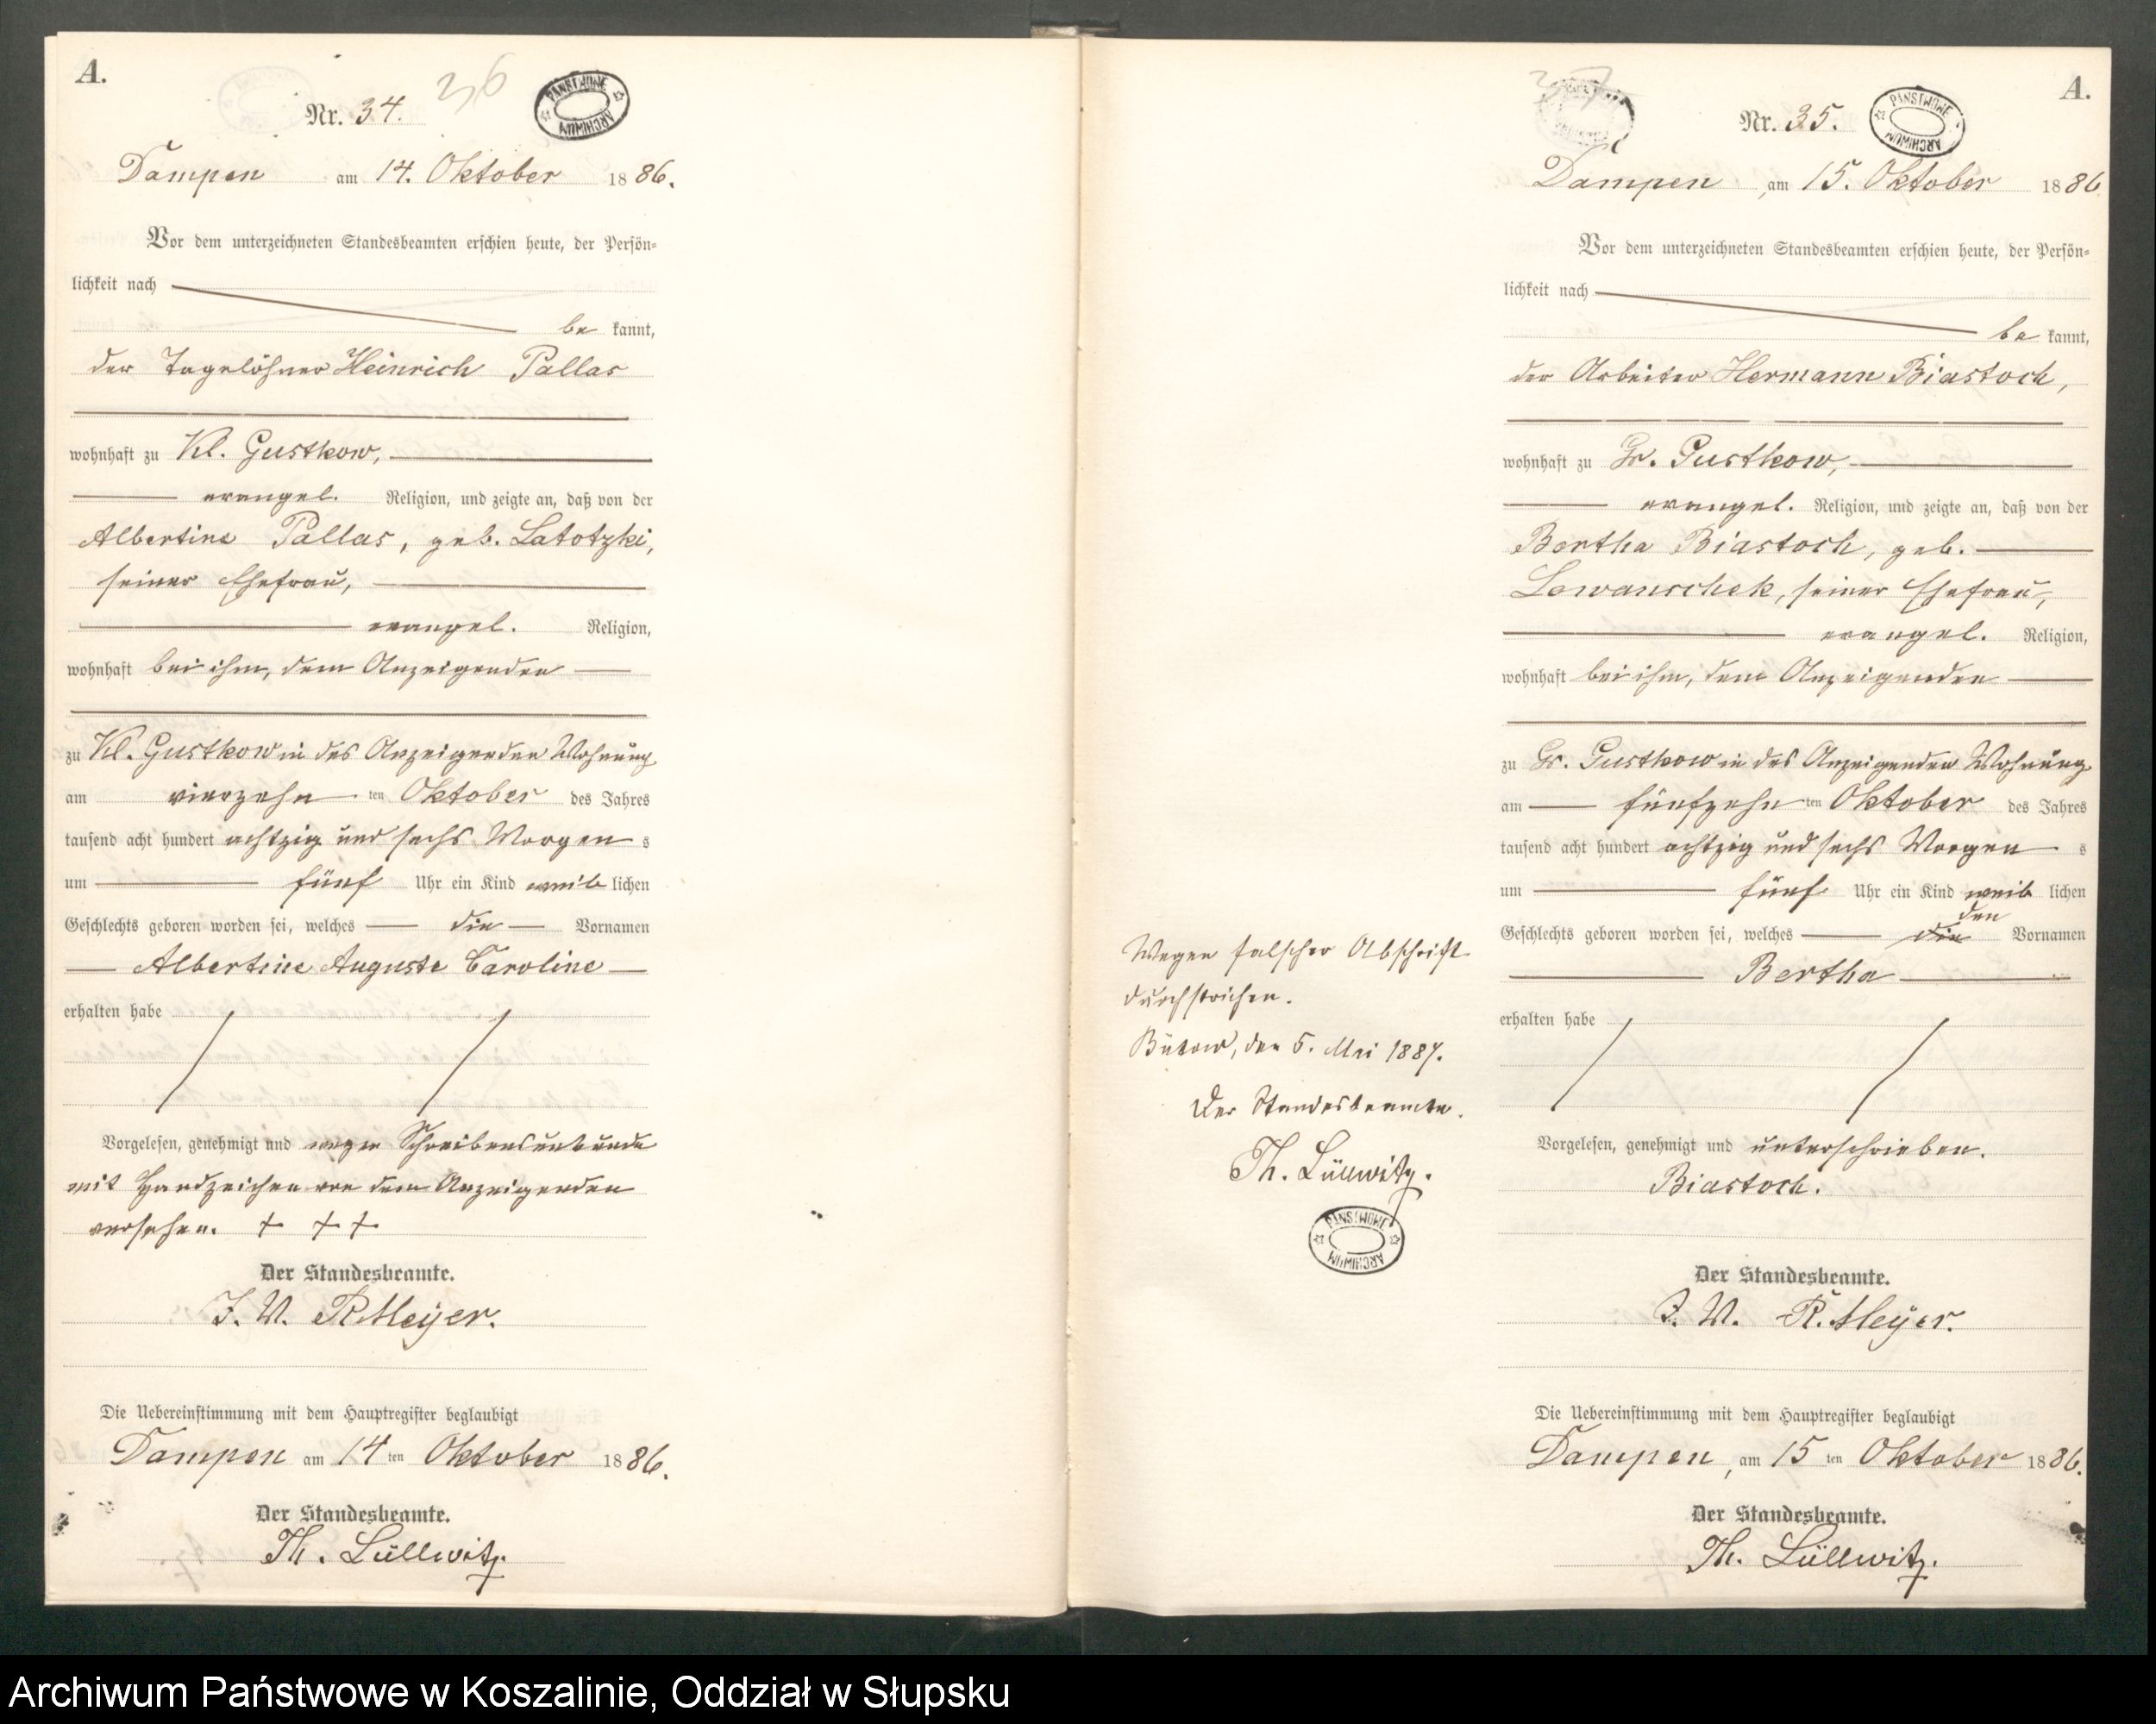 A.
Nr. 34.
36
PAŃSTWOWE ARCHIWUM
Dampen am 14. Oktober 1886.
Vor dem unterzeichneten Standesbeamten erschien heute, der Persön-
lichkeit nach
be kannt,
der Tagelöhner Heinrich Pallas
wohnhaft zu Kl. Gustkow,
evangel. Religion, und zeigte an, daß von der
Albertine Pallas, geb. Latotzki,
seiner Ehefrau,
evangel. Religion,
wohnhaft bei ihm, dem Anzeigenden
zu Kl. Gustkow in des Anzeigenden Wohnung
am vierzehn ten Oktober des Jahres
tausend acht hundert achtzig und sechs Morgen s
um fünf Uhr ein Kind weib lichen
Geschlechts geboren worden sei, welches die Vornamen
Albertine Auguste Caroline
erhalten habe
Vorgelesen, genehmigt und wegen Schreibensunkunde
mit Handzeichen von dem Anzeigenden
versehen. + + +
Der Standesbeamte.
J. V. R. Meijer.
Die Uebereinstimmung mit dem Hauptregister beglaubigt
Dampen am 14 ten Oktober 1886.
Der Standesbeamte.
Th. Lüllwitz.
Wegen falscher Abschrift
durchstrichen.
Bütow, den 5. Mai 1887.
Der Standesbeamte.
Th. Lüllwitz.
PAŃSTWOWE ARCHIWUM
A.
37
Nr. 35.
PAŃSTWOWE ARCHIWUM
Dampen, am 15. Oktober 1886
Vor dem unterzeichneten Standesbeamten erschien heute, der Persön-
lichkeit nach
be kannt,
der Arbeiter Hermann Biastoch,
wohnhaft zu Gr. Gustkow,
evangel. Religion, und zeigte an, daß von der
Bertha Biastoch, geb.
Lewanschek, seiner Ehefrau,
evangel. Religion,
wohnhaft bei ihm, dem Anzeigenden
zu Gr. Gustkow in des Anzeigenden Wohnung
am fünfzehn ten Oktober des Jahres
tausend acht hundert achtzig und sechs Morgen s
um fünf Uhr ein Kind weib lichen
den
Geschlechts geboren worden sei, welches die Vornamen
Bertha
erhalten habe
Vorgelesen, genehmigt und unterschrieben.
Biastoch.
Der Standesbeamte.
J. V. R. Meijer.
Die Uebereinstimmung mit dem Hauptregister beglaubigt
Dampen, am 15 ten Oktober 1886.
Der Standesbeamte.
Th. Lüllwitz.
Archiwum Państwowe w Koszalinie, Oddział w Słupsku